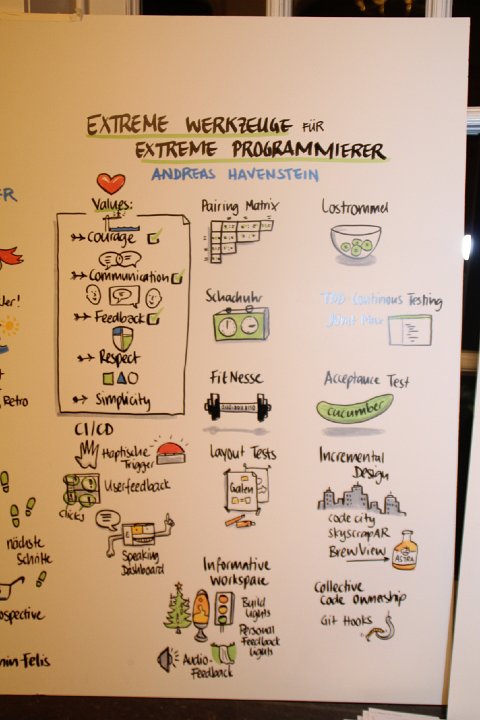 EXTREME WERKZEUGE FÜR
EXTREME PROGRAMMIERER
ANDREAS HAVENSTEIN
Values:
Courage
Communication
Feedback
Respect
Simplicity
Pairing Matrix
Lostrommel
Schachuhr
TDD Continous Testing
FitNesse
Acceptance Test
cucumber
CI/CD
Haptische
Trigger
Userfeedback
clicks
Speaking
Dashboard
Layout Tests
Galen
Incremental
Design
code city
SkyscrapAR
BrewView
ASTRA
Informative
Workspace
Build
Lights
Personal
Feedback
Lights
Audio-
Feedback
Collective
Code Ownership
Git Hooks
ER
Retro
nächste
Schritte
ospective
min Felis